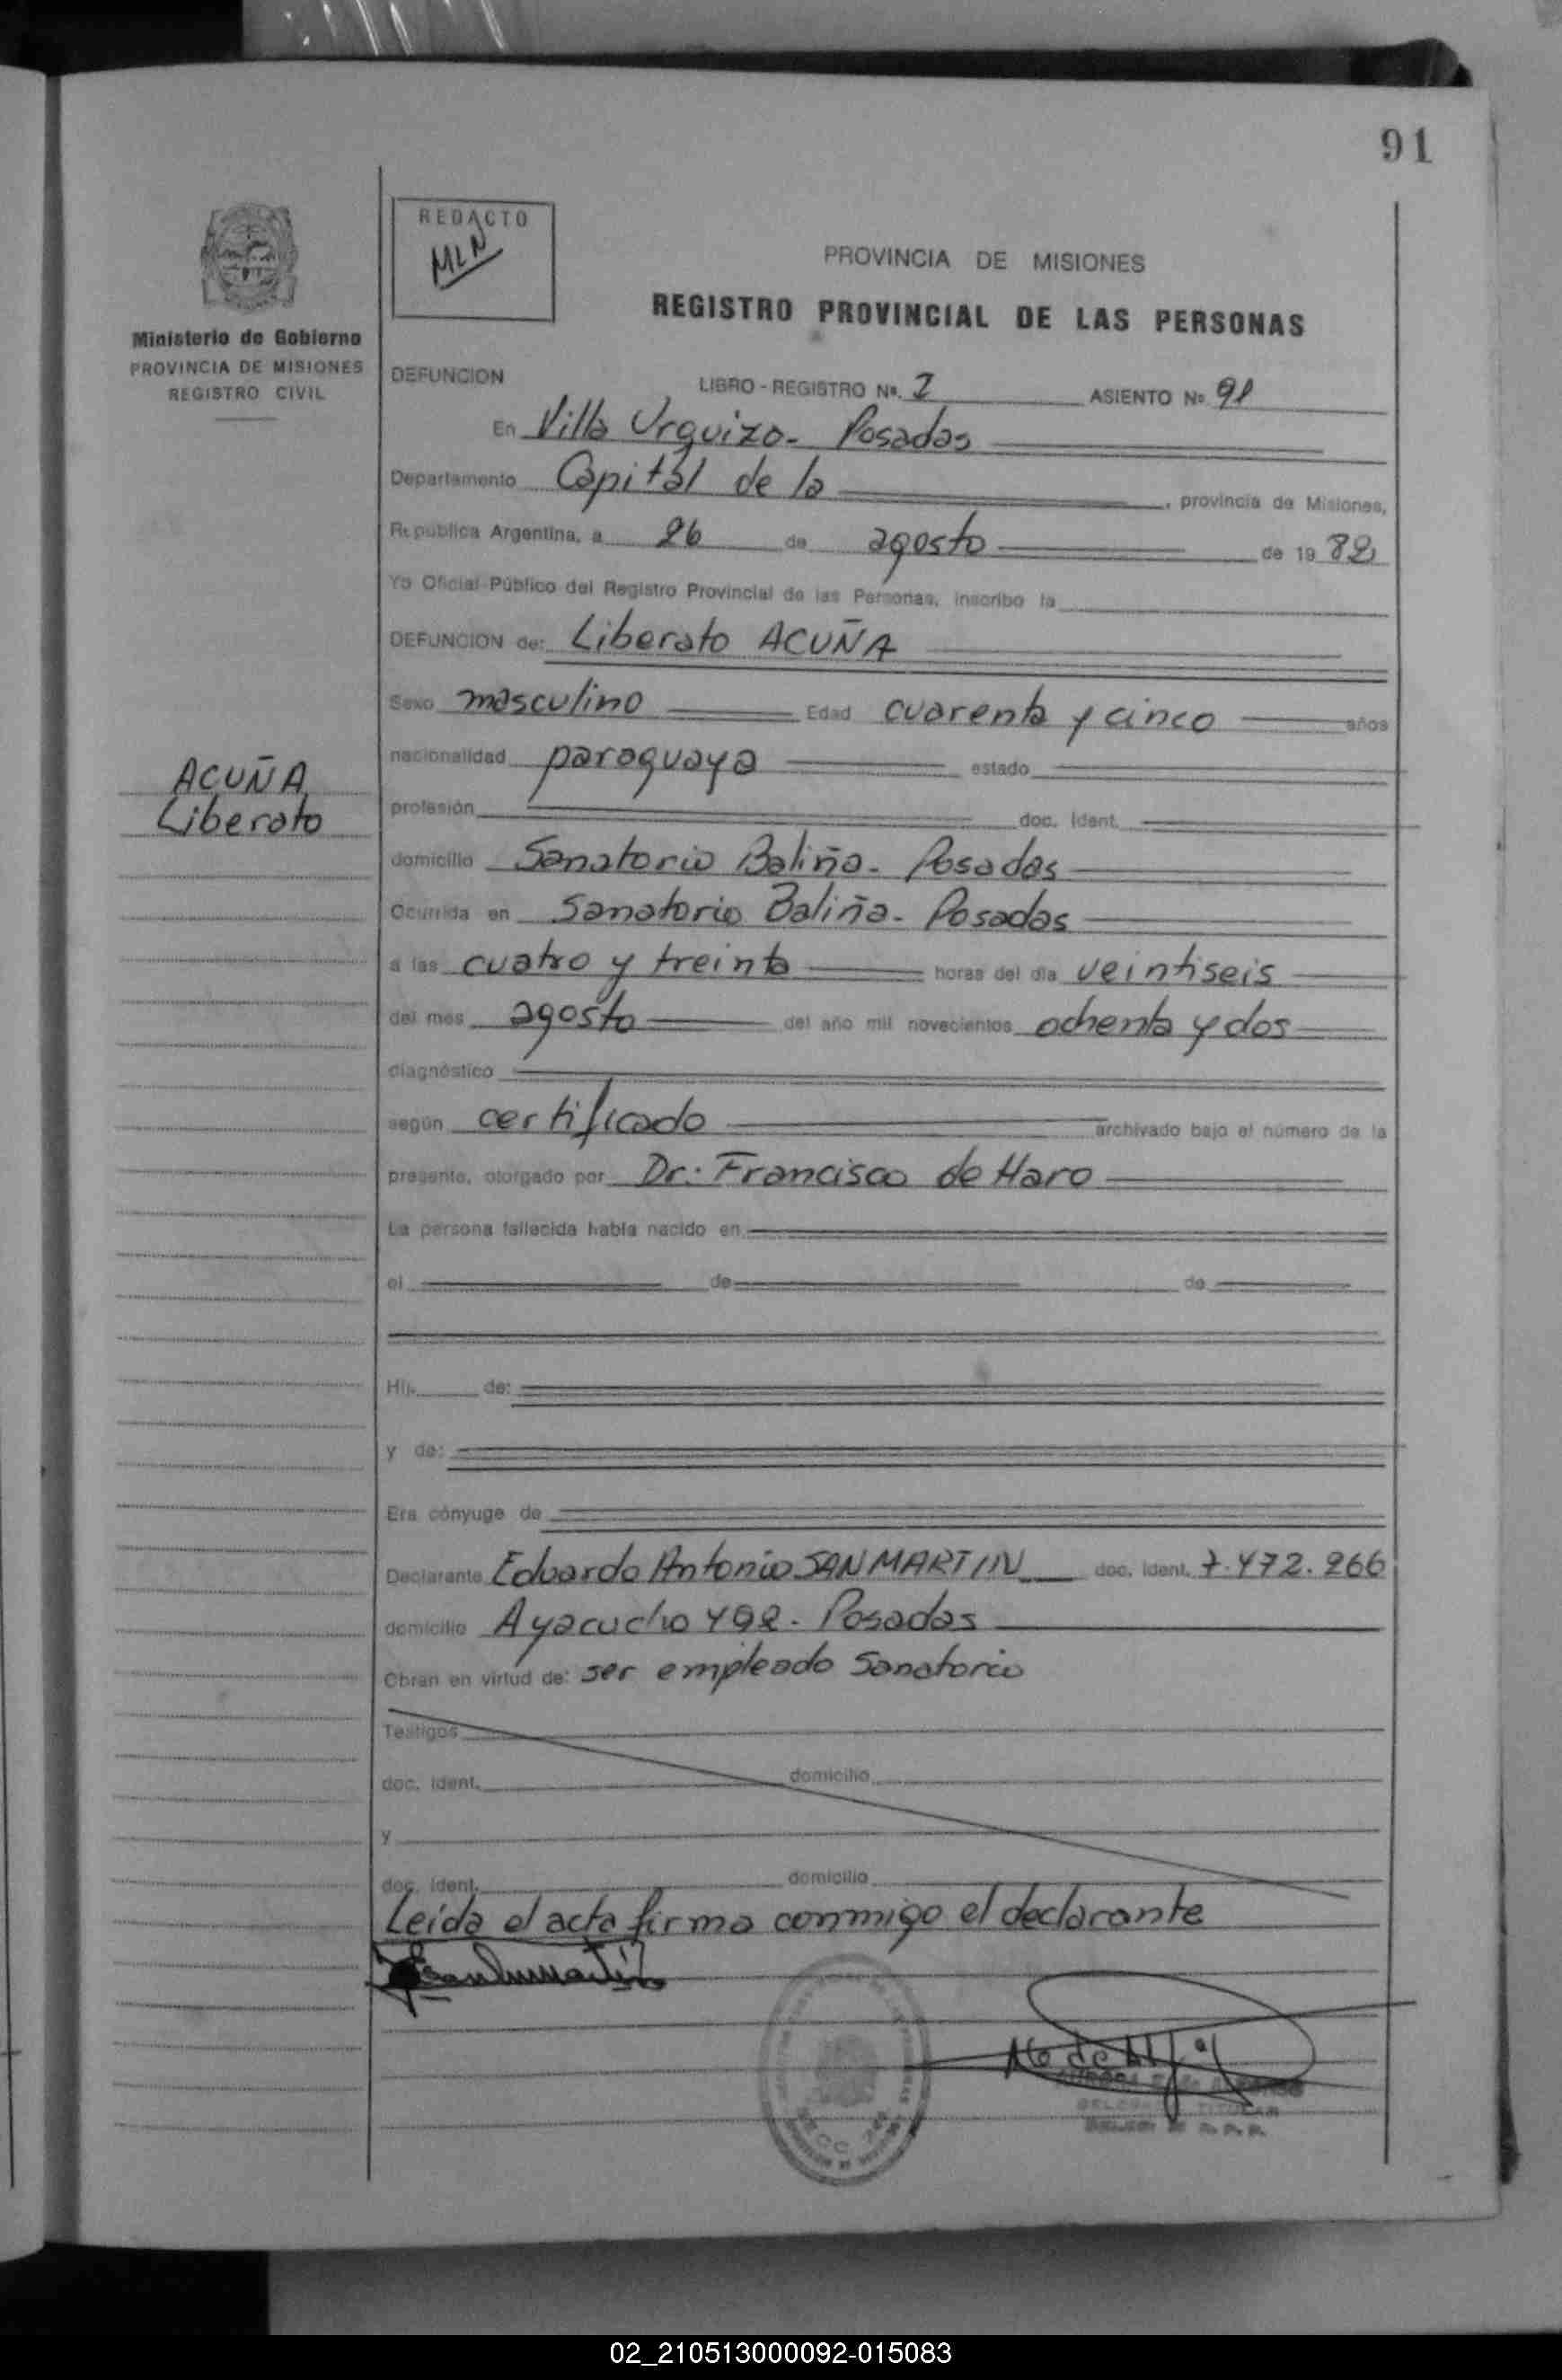 91
REDACTO
MLN
PROVINCIA DE MISIONES
REGISTRO PROVINCIAL DE LAS PERSONAS
Ministerio de Gobierno
PROVINCIA DE MISIONES
REGISTRO CIVIL
DEFUNCION LIBRO - REGISTRO Nº. I ASIENTO Nº 91
En Villa Urquiza - Posadas
Departamento Capital de la, provincia de Misiones,
República Argentina, a 26 de agosto de 1982
Yo Oficial Público del Registro Provincial de las Personas, inscribo la
DEFUNCION de: Liberato ACUÑA
Sexo masculino Edad cuarenta y cinco años
nacionalidad paraguaya estado
ACUÑA
Liberato
profesión doc. ident.
domicilio Sanatorio Baliña - Posadas
Ocurrida en Sanatorio Baliña - Posadas
a las cuatro y treinta horas del día veintiseis
del mes agosto del año mil novecientos ochenta y dos
diagnóstico
según certificado archivado bajo el número de la
presente, otorgado por Dr: Francisco de Haro
La persona fallecida había nacido en
el de de
Hij de:
y de:
Era cónyuge de
Declarante Eduardo Antonio SANMARTIN doc. ident. 7.472.266
domicilio Ayacucho 492 - Posadas
Obran en virtud de: ser empleado Sanatorio
Testigos
doc. ident. domicilio
y
doc. ident. domicilio
Leída el acta firma conmigo el declarante
02_210513000092-015083